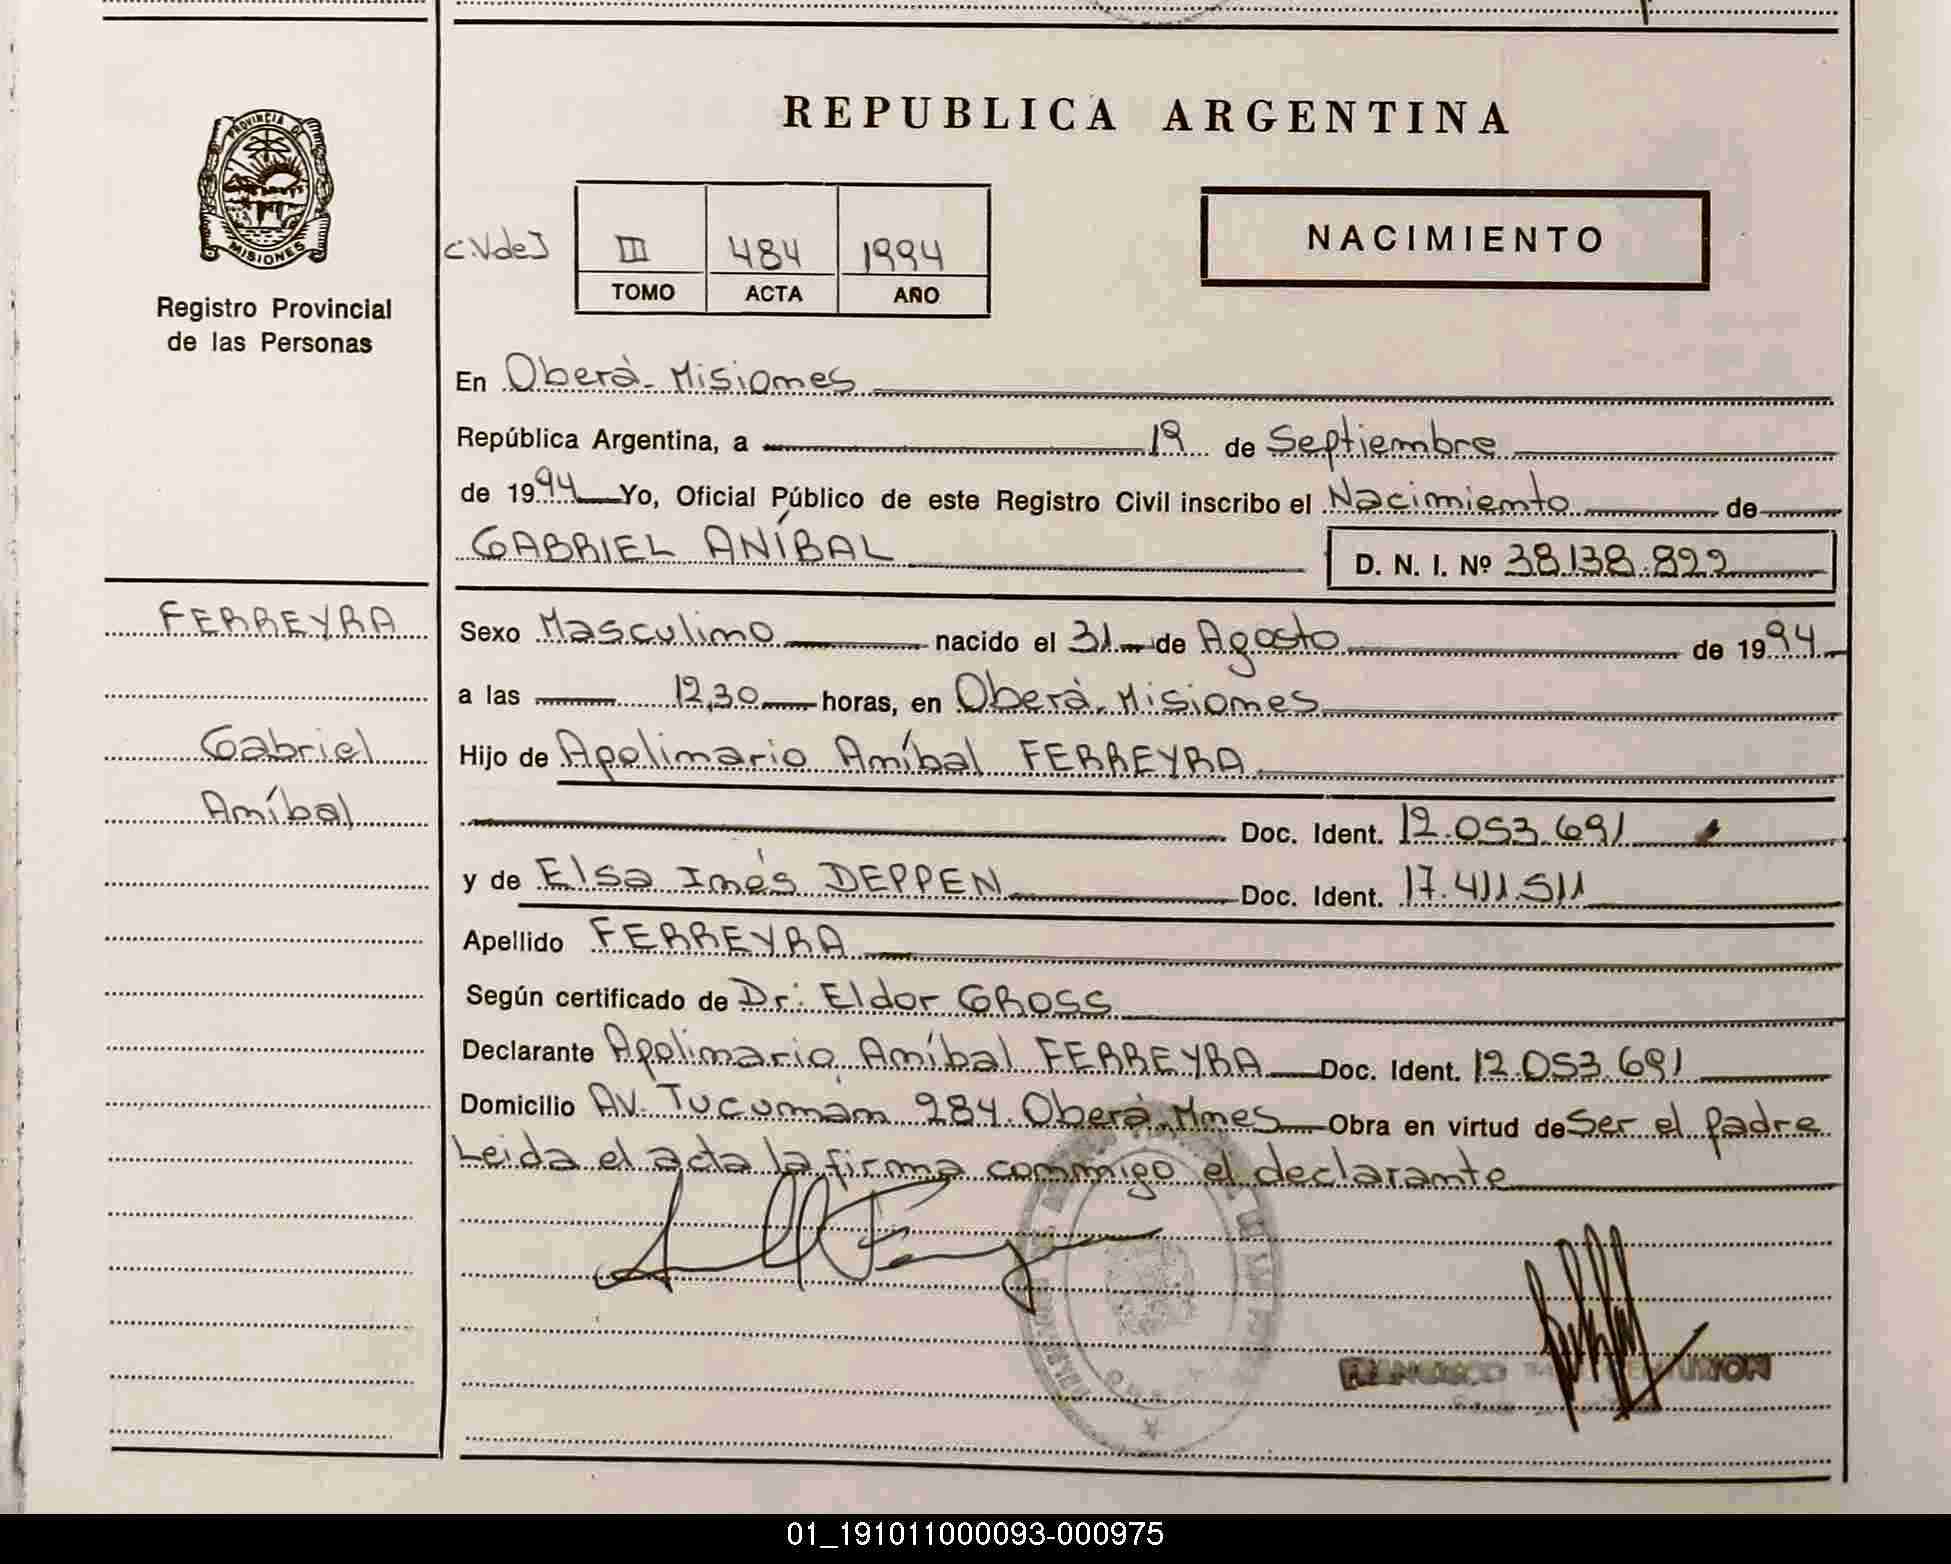 PROVINCIA DE
MISIONES
Registro Provincial
de las Personas
REPUBLICA ARGENTINA
c.VdeJ III 484 1994
TOMO ACTA AÑO
NACIMIENTO
En Oberà- Misiones
República Argentina, a 19 de Septiembre
de 1994 Yo, Oficial Público de este Registro Civil inscribo el Nacimiento de
GABRIEL ANÍBAL D. N. I. Nº 38.138.822
FERREYRA
Gabriel
Aníbal
Sexo Masculino nacido el 31 de Agosto de 1994
a las 12,30 horas, en Oberà- Misiones
Hijo de Apolinario Aníbal FERREYRA
Doc. Ident. 12.053.691
y de Elsa Inés DEPPEN Doc. Ident. 17.411.511
Apellido FERREYRA
Según certificado de Dr: Eldor GROSS
Declarante Apolinario Aníbal FERREYRA Doc. Ident. 12.053.691
Domicilio AV. Tucumán 984. Oberà-Mnes Obra en virtud de Ser el padre
Leida el acta la firma conmigo el declarante
01_191011000093-000975